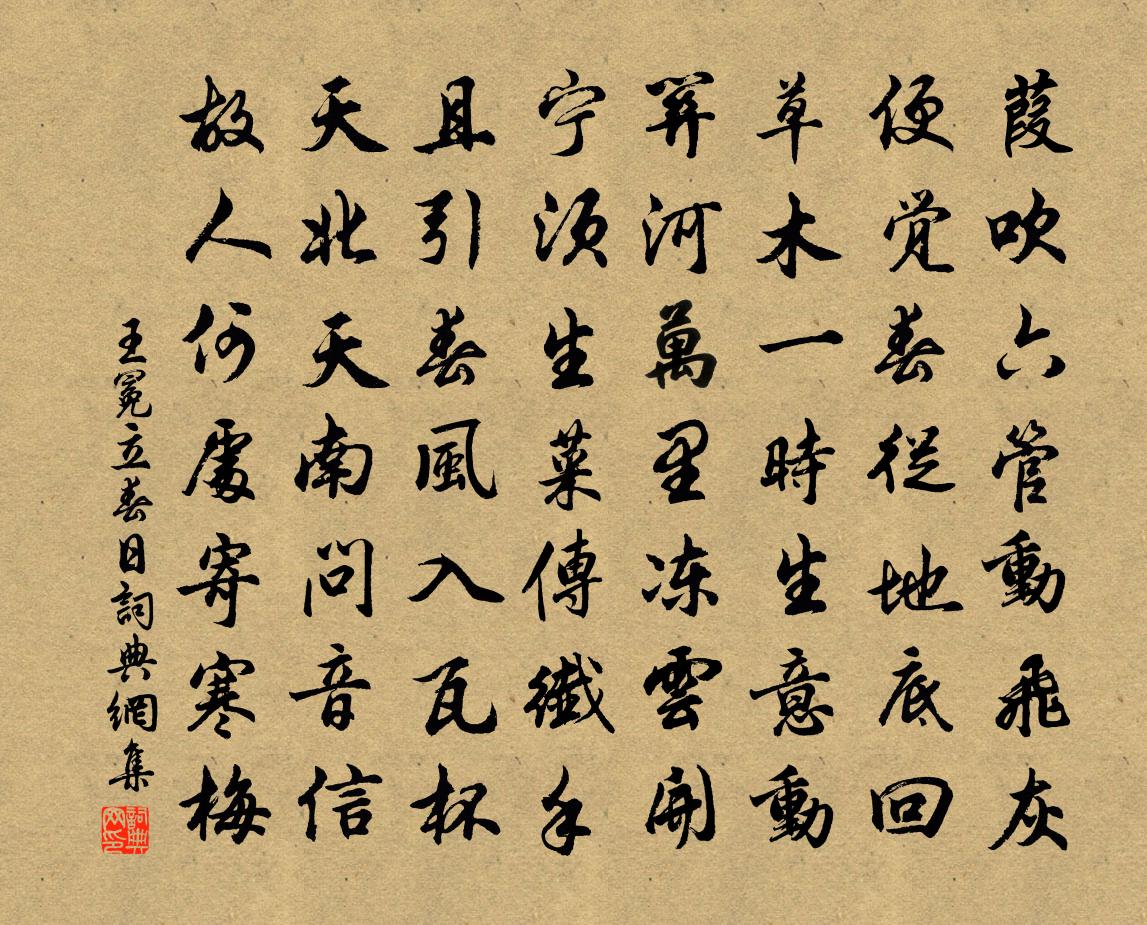 葭吹六管動飛灰
便觉春從地底回
草木一時生意動
關河萬里冻雲開
宁须生菜傳纖手
且引春風入瓦杯
天北天南問音信
故人何處寄寒梅
王冕立春日詞典網集
詞典网印